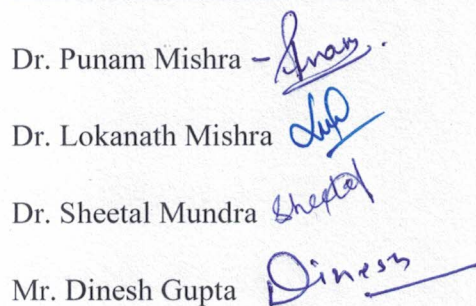 Dr. Punam Mishra - Punam.
Dr. Lokanath Mishra
Dr. Sheetal Mundra Sheetal
Mr. Dinesh Gupta Dinesh